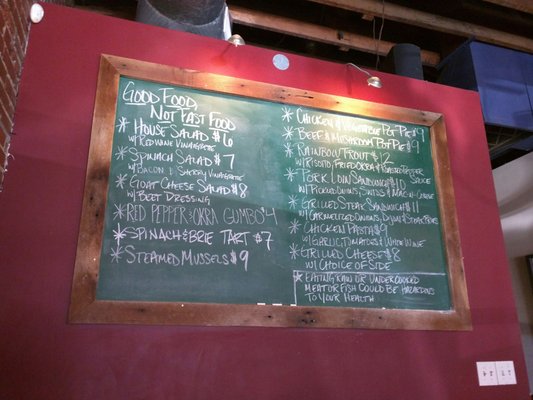 Good Food,
Not Fast Food
* House Salad $6
w/ Red Wine Vinaigrette
* Spinach Salad $7
w/ Bacon & Sherry Vinaigrette
* Goat Cheese Salad $8
w/ Beet Dressing
* Red Pepper & Okra Gumbo $4
* Spinach & Brie Tart $7
* Steamed Mussels $9
* Chicken & Vegetable Pot Pie $9
* Beef & Mushroom Pot Pie $9
* Rainbow Trout $12
w/ Risotto, Fried Okra & Roasted Pepper Sauce
* Pork Loin Sandwich $10
w/ Pickled Onions, Swiss & Mac & Cheese
* Grilled Steak Sandwich $11
w/ Caramelized Onions, Dijon & Steak Fries
* Chicken Pasta $9
w/ Garlic, Tomatoes & White Wine
* Grilled Cheese $8
w/ Choice of Side
* Eating raw or undercooked
meat or fish could be hazardous
to your health